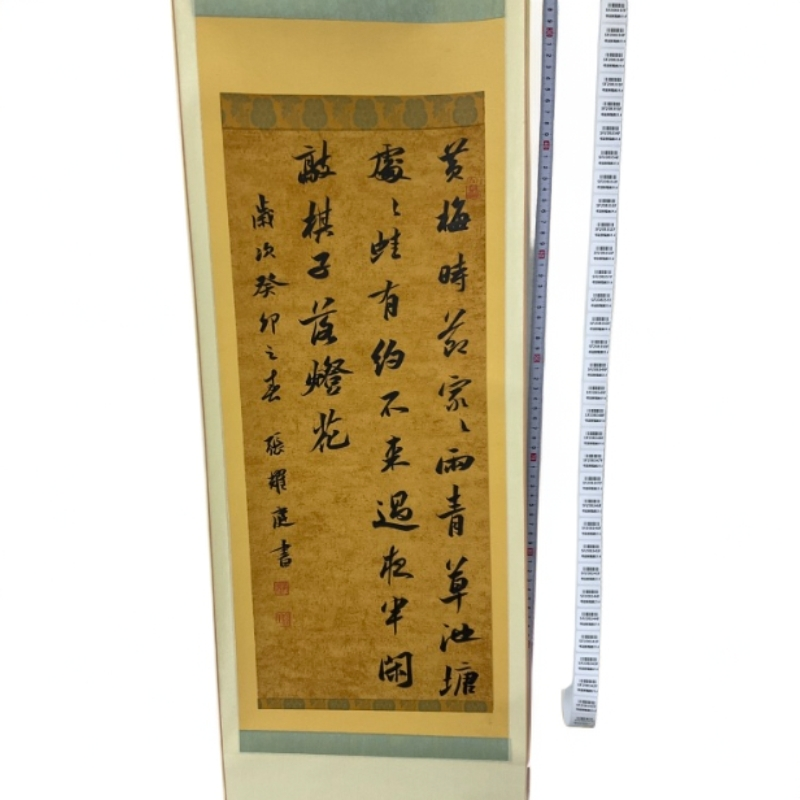 黄梅時節家々雨青草池塘
處々蛙有約不来過夜半閑
敲棋子落燈花
歲次癸卯之春 張耀庭書